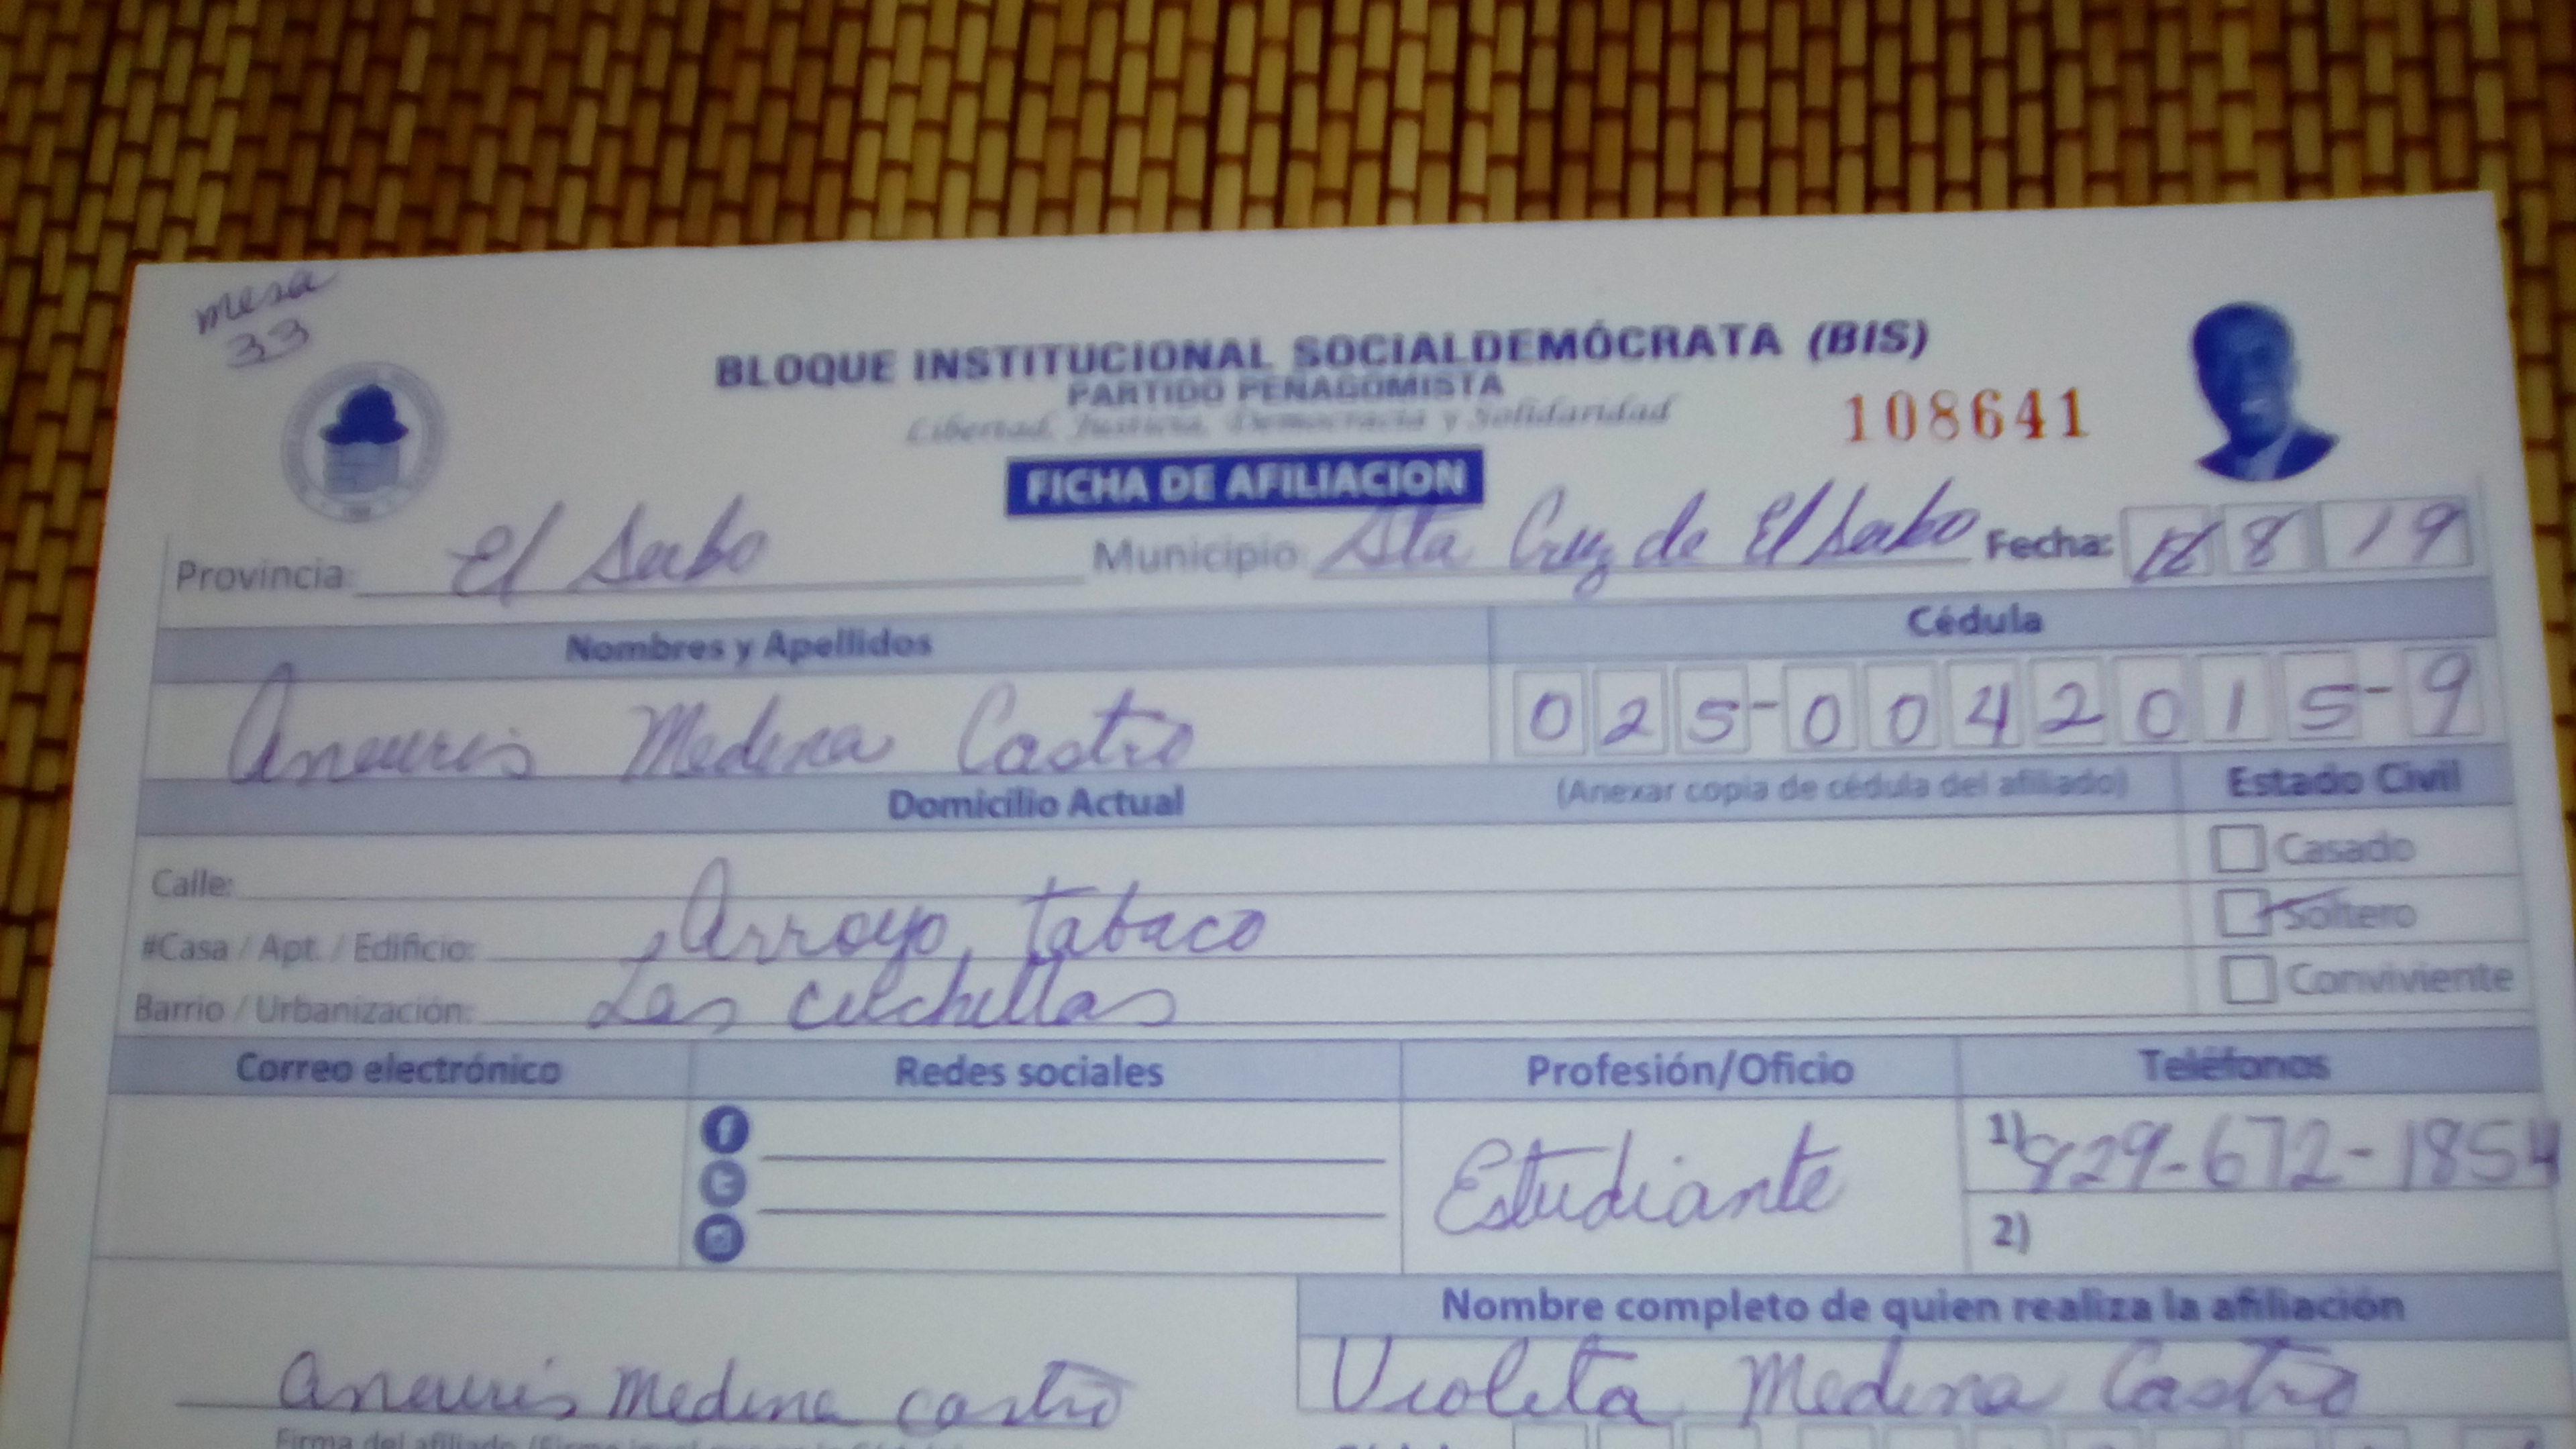 mesa
33
BLOQUE INSTITUCIONAL SOCIALDEMÓCRATA (BIS)
PARTIDO PEÑAGOMISTA
Libertad, Justicia, Democracia y Solidaridad
108641
FICHA DE AFILIACION
Provincia: El Seibo Municipio: Sta Cruz de El Seibo Fecha: 8 19
Nombres y Apellidos Cédula
Aneuris Medina Castro 025-0042015-9
Domicilio Actual (Anexar copia de cédula del afiliado) Estado Civil
Calle: Casado
#Casa / Apt. / Edificio: Arroyo tabaco Soltero
Barrio / Urbanización: Las cuchillas Conviviente
Correo electrónico Redes sociales Profesión/Oficio Teléfonos
Estudiante 1) 829-672-1854
2)
Nombre completo de quien realiza la afiliación
Aneuris Medina castro Violeta Medina Castro
Firma del afiliado